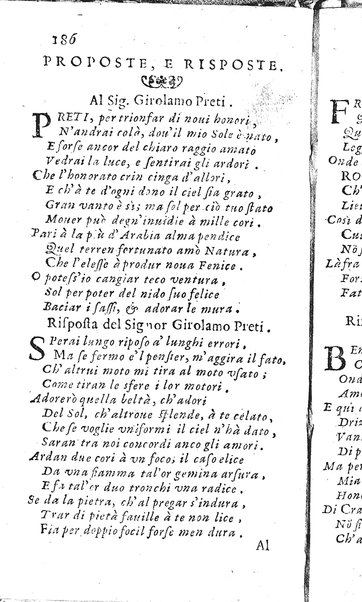 186
PROPOSTE, E RISPOSTE.
Al Sig. Girolamo Preti.
PRETI, per trionfar di noui honori,
N'andrai colà, dou'il mio Sole è nato,
E forse ancor del chiaro raggio amato
Vedrai la luce, e sentirai gli ardori.
Che l'honorato crin cinga d'allori,
E ch'à te d'ogni dono il ciel sia grato,
Gran vanto è sì; ma sol per ciò tuo stato
Mouer può degn'inuidie à mille cori.
Pari à la più d'Arabia alma pendice
Quel terren fortunato amò Natura,
Che l'elesse à produr noua Fenice.
O potess'io cangiar teco ventura,
Sol per poter del nido suo felice
Baciar i sassi, & adorar le mura.
Risposta del Signor Girolamo Preti.
SPerai lungo riposo à lunghi errori,
Ma se fermo è'l pensier, m'aggira il fato,
Ch'altrui moto mi tira al moto vsato;
Come tiran le sfere i lor motori.
Adorerò quella beltà, ch'adori
Del Sol, ch'altroue splende, à te celato,
Che se voglie vniformi il ciel n'hà dato,
Saran tra noi concordi anco gli amori.
Ardan due cori à vn foco; il caso elice
Da vna fiamma tal'or gemina arsura,
E fa tal'or due tronchi vna radice.
Se da la pietra, ch'al pregar s'indura,
Trar di pietà fauille à te non lice,
Fia per doppio focil forse men dura.
Al